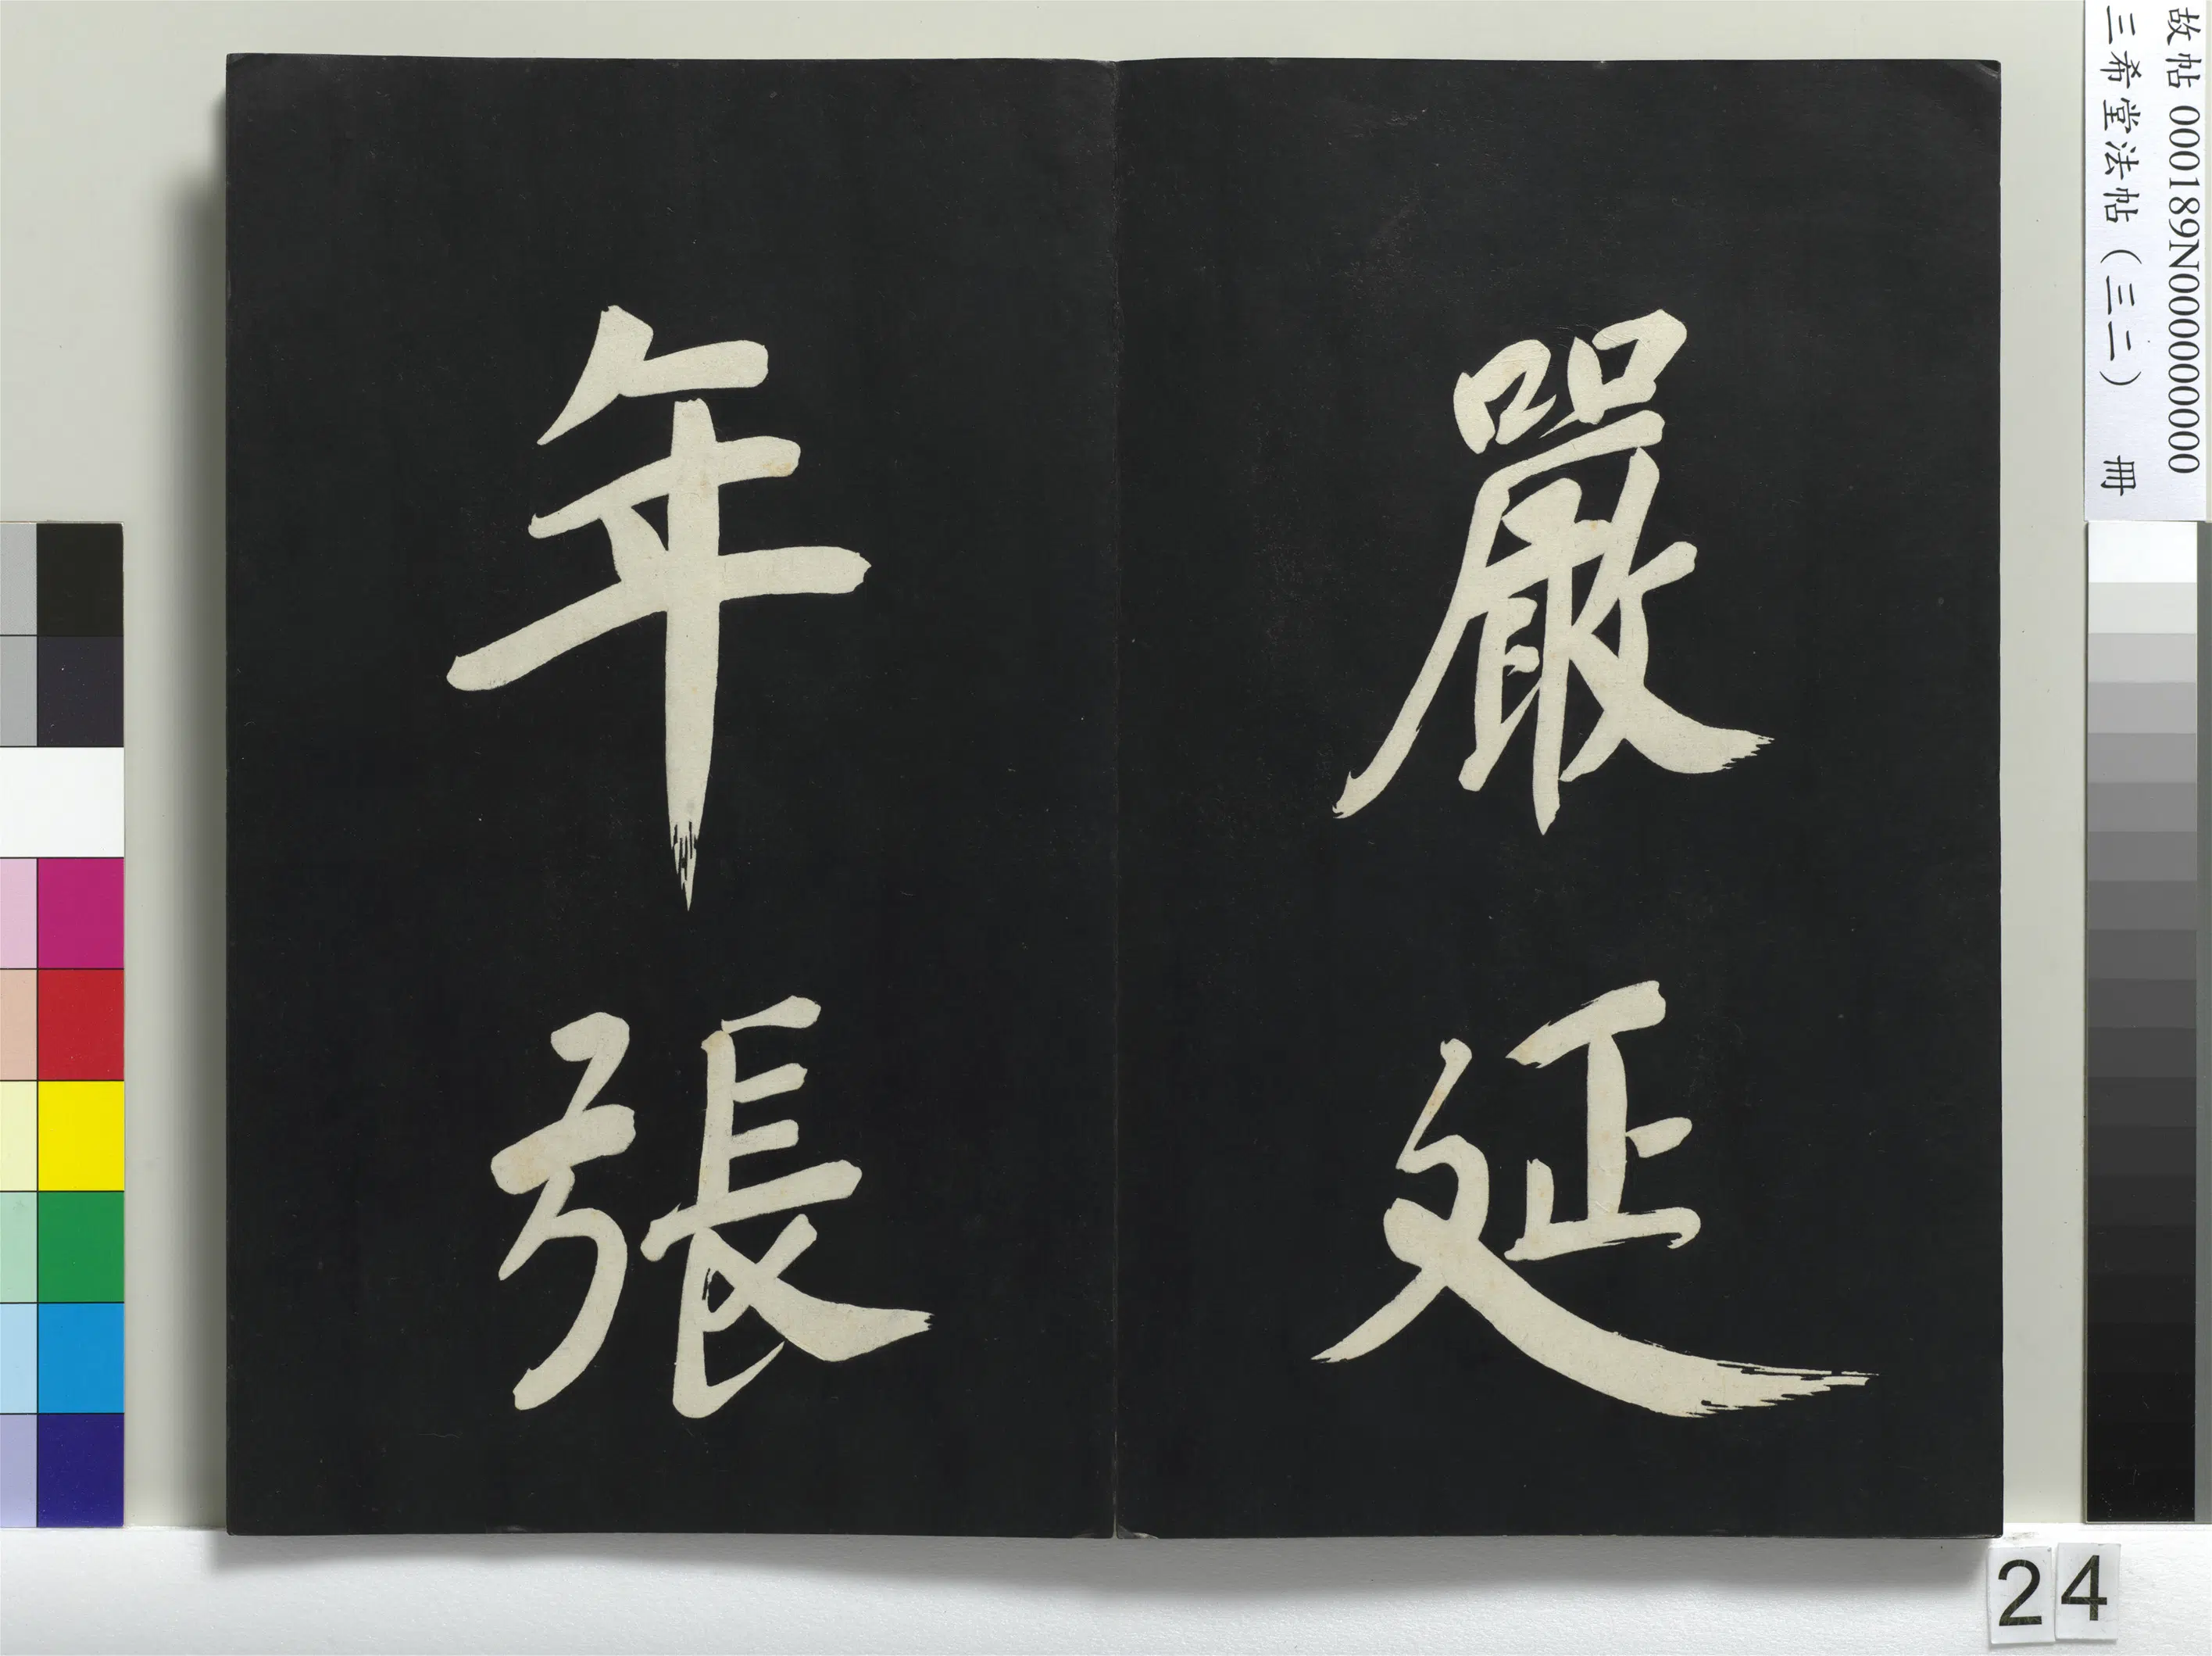 嚴延
年張
故帖 000189N000000000
三希堂法帖（三二） 冊
24